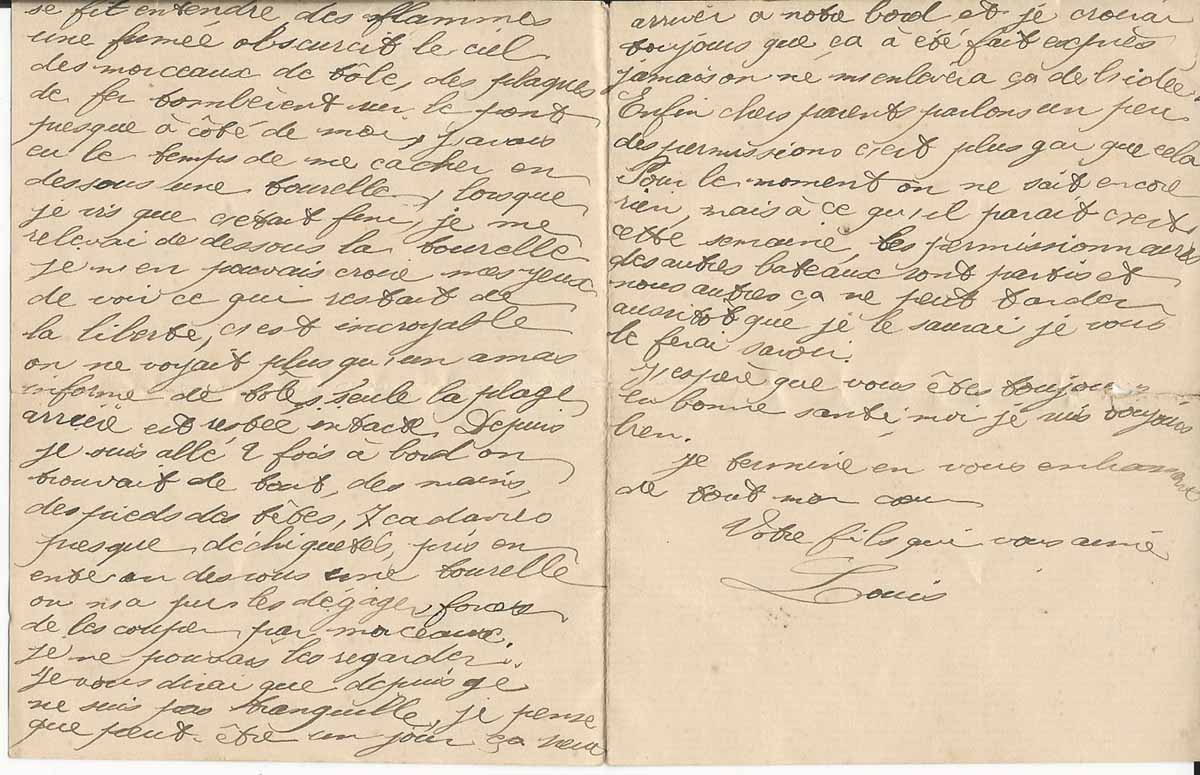 se fit entendre des flammes
une fumée obscurcit le ciel
des morceaux de tôle, des plaques
de fer tombèrent sur le pont
presque à côté de moi, j'avais
eu le temps de me cacher en
dessous une tourelle, lorsque
je vis que c'etait fini, je me
relevai de dessous la tourelle
je n'en pouvais croire mes yeux
de voir ce qui restait de
la liberté, c'est incroyable
on ne voyait plus qu'un amas
informe de tôle, seule la plage
arrière est restée intacte. Depuis
je suis allé 2 fois à bord on
trouvait de tout, des mains,
des pieds des têtes, 7 cadavres
presque déchiquetés, pris en
entre en dessous une tourelle
on n'a pu les dégager, forcés
de les couper par morceaux.
je ne pouvais les regarder.
Je vous dirai que depuis je
ne suis pas tranquille, je pense
que peut-être un jour ça sera
arriver à notre bord et je croirai
toujours que ça à été fait exprès
jamais on ne m'enlèvera ça de l'idée.
Enfin chers parents parlons un peu
des permissions c'est plus gai que cela
Pour le moment on ne sait encore
rien, mais à ce qu'il parait c'est
cette semaine, les permissionnaires
des autres bateaux sont partis et
nous autres ça ne peut tarder
aussitôt que je le saurai je vous
le ferai savoir.
J'espère que vous êtes toujours
en bonne santé moi je suis toujours
bien.
Je termine en vous embrassant
de tout mon cœur
Votre fils qui vous aime
Louis